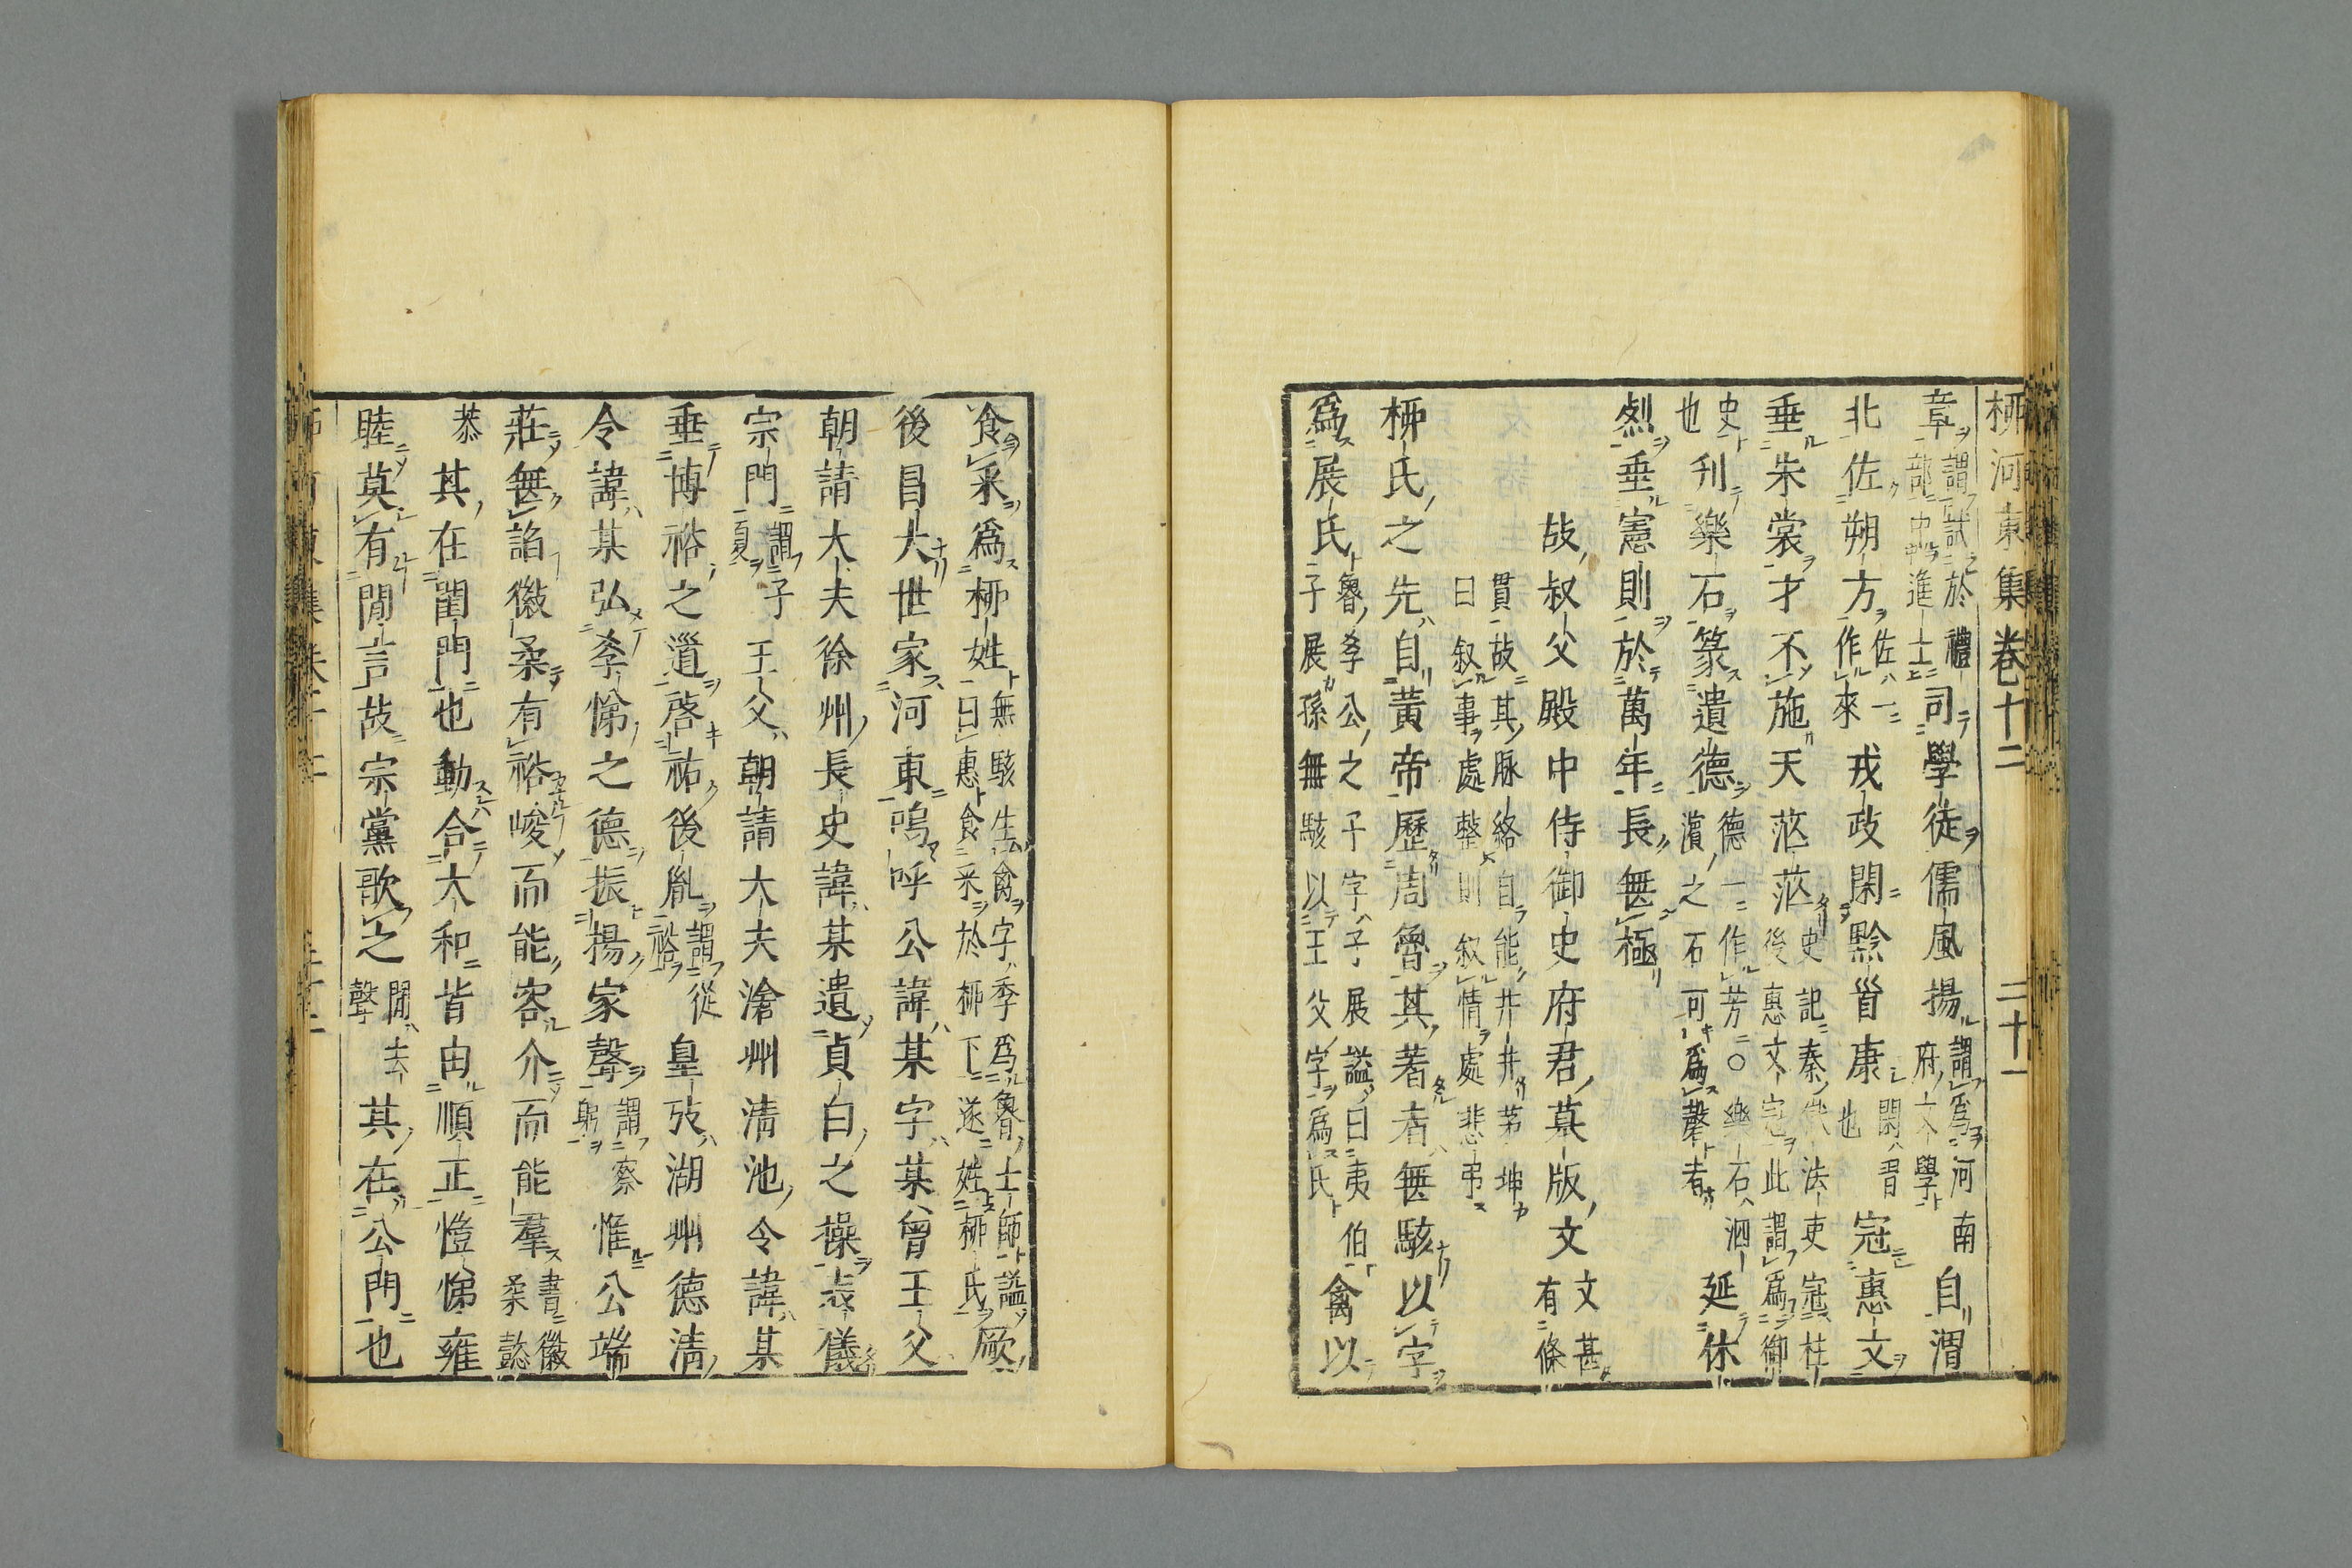 柳河東集卷十二 二十一
章謂試於禮部中進士司學徒儒風揚謂爲河南府文學自渭
北佐朔方佐一作來戎政閑黔首康閑習也冠惠文
垂朱裳才不施天茫茫史記秦法吏冠柱後惠文冠此謂爲御
史也刊樂石篆遺德德一作芳○樂石泗濱之石可爲磬者延休
烈垂憲則於萬年長無極
故叔父殿中侍御史府君墓版文文甚有條
貫故其脉絡自能井井茅坤曰叙事處整則叙情處悲弔
柳氏之先自黃帝歷周魯其著者無駭以字
爲展氏魯孝公之子字子展謚曰夷伯子展孫無駭以王父字爲氏禽以
食采爲柳姓無駭生禽字季爲魯士師謚曰惠食采於柳下遂姓柳氏厥
後昌大世家河東嗚呼公諱某字某曾王父
朝請大夫徐州長史諱某遺貞白之操表儀
宗門謂子夏王父朝請大夫滄州清池令諱某
垂博裕之道啓祐後胤謂從裕皇考湖州德清
令諱某弘孝悌之德振揚家聲謂察躬惟公端
莊無諂徽柔有裕峻而能容介而能羣書徽柔懿
恭其在閨門也動合大和皆由順正愷悌雍
睦莫有閒言故宗黨歌之閒去聲其在公門也